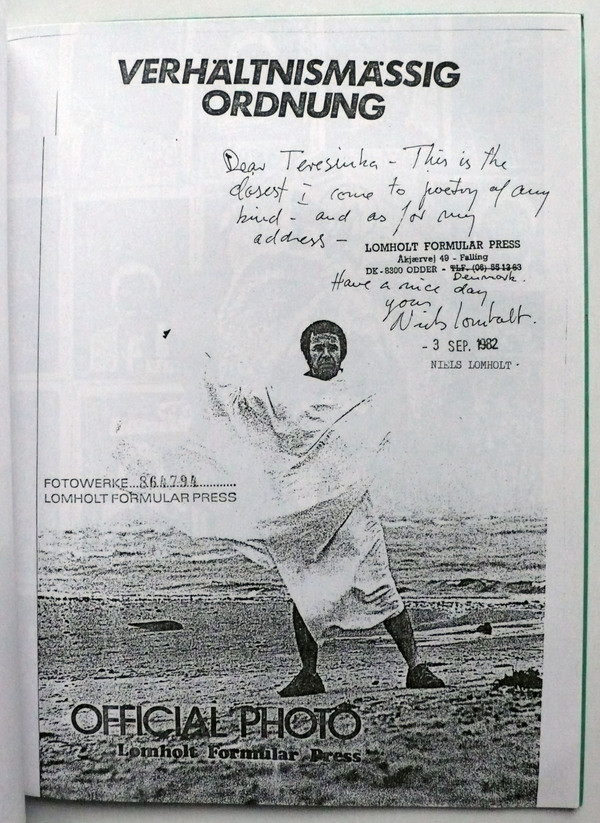 VERHÄLTNISMÄSSIG
ORDNUNG
Dear Teresinka - This is the
closest I come to poetry of any
kind - and as for my
address -
LOMHOLT FORMULAR PRESS
Akjærvej 49 - Falling
DK-8300 ODDER - TLF. (06) 55 13 63
Denmark.
Have a nice day
your
Niels Lomholt.
- 3 SEP. 1982
NIELS LOMHOLT -
FOTOWERKE...864794............
LOMHOLT FORMULAR PRESS
OFFICIAL PHOTO
Lomholt Formular Press